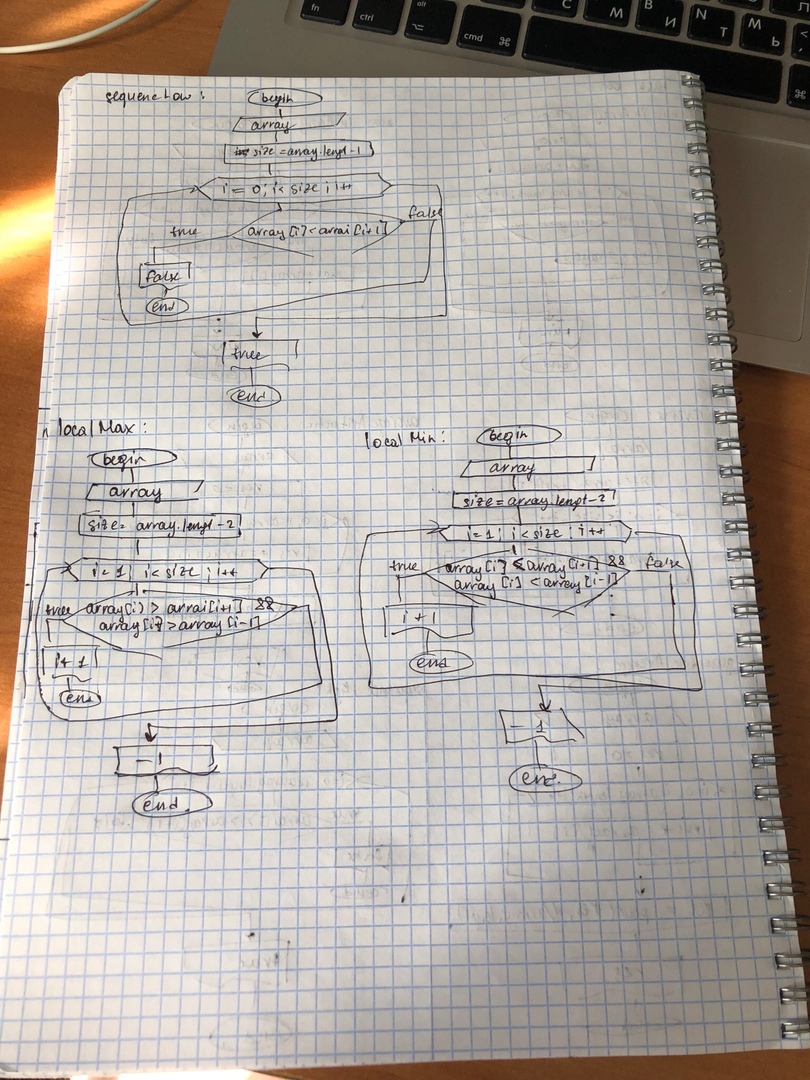 fn
ctrl
alt
⌥
cmd ⌘
С
М
В
И
N
Т
М
Ь
⌘
sequence Low :
begin
array
size = array.lengt-1
i = 0; i < size ; i++
true
array [i] < arrai [i+1]
false
false
end
true
end
local Max :
begin
array
size = array.lengt-2
i = 1; i < size ; i++
true
array[i] > arrai[i+1] &&
array [i] > array [i-1]
i+1
end
-1
end.
local Min :
begin
array
size = array.lengt-2
i=1; i < size ; i++
true
array [i] < array [i+1] &&
array [i] < array [i-1]
false
i+1
end
- 1
end.